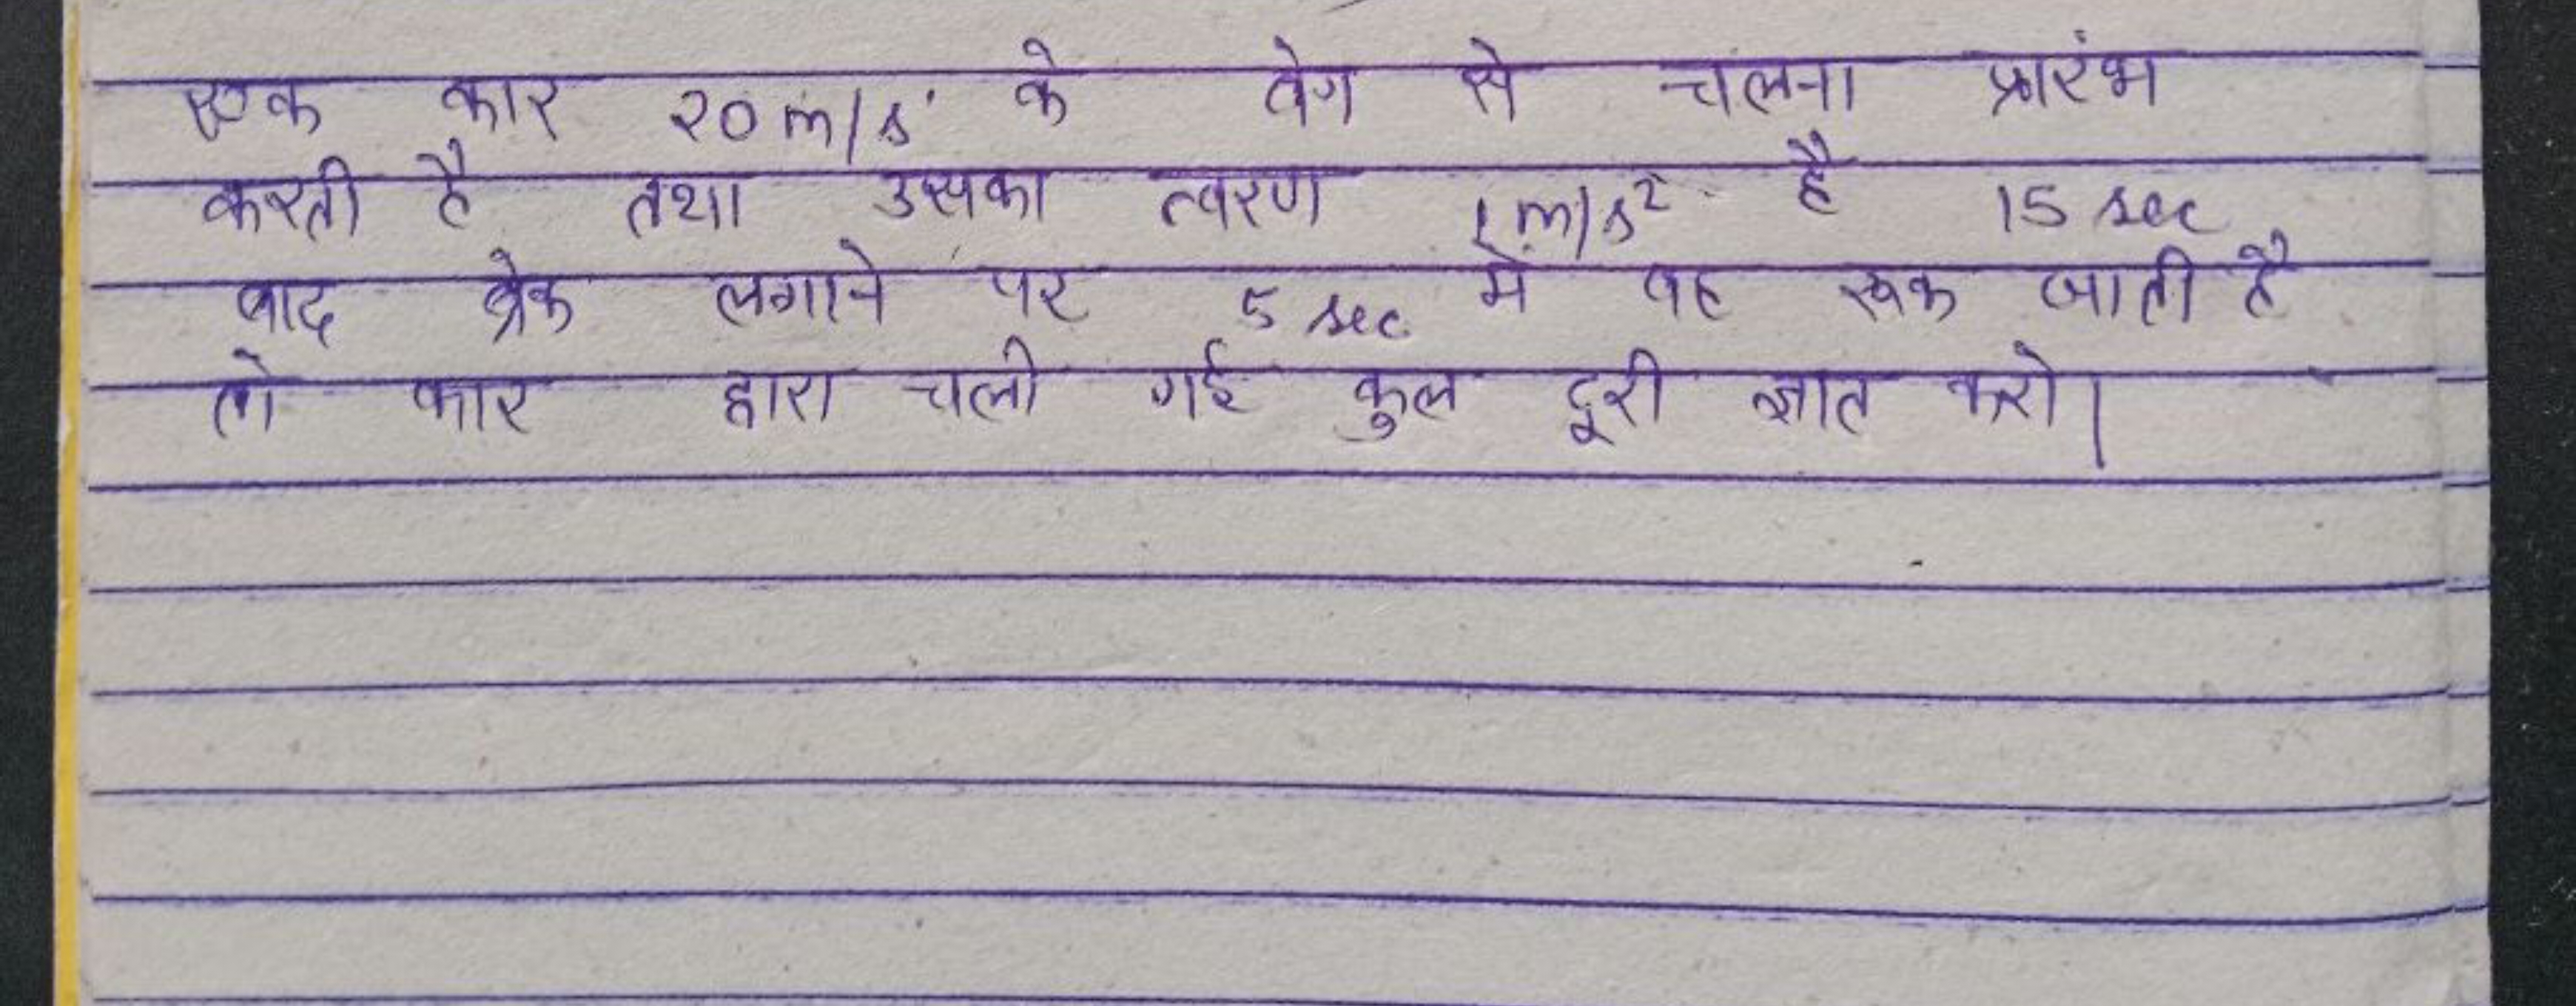 एक कार 20 m/s के वेग से चलना प्रारंभ
करती है तथा उसका त्वरण 1 m/s² है 15 sec
बाद ब्रेक लगाने पर 5 sec. में वह रूक जाती है
तो कार द्वारा चली गई कुल दूरी ज्ञात करो।